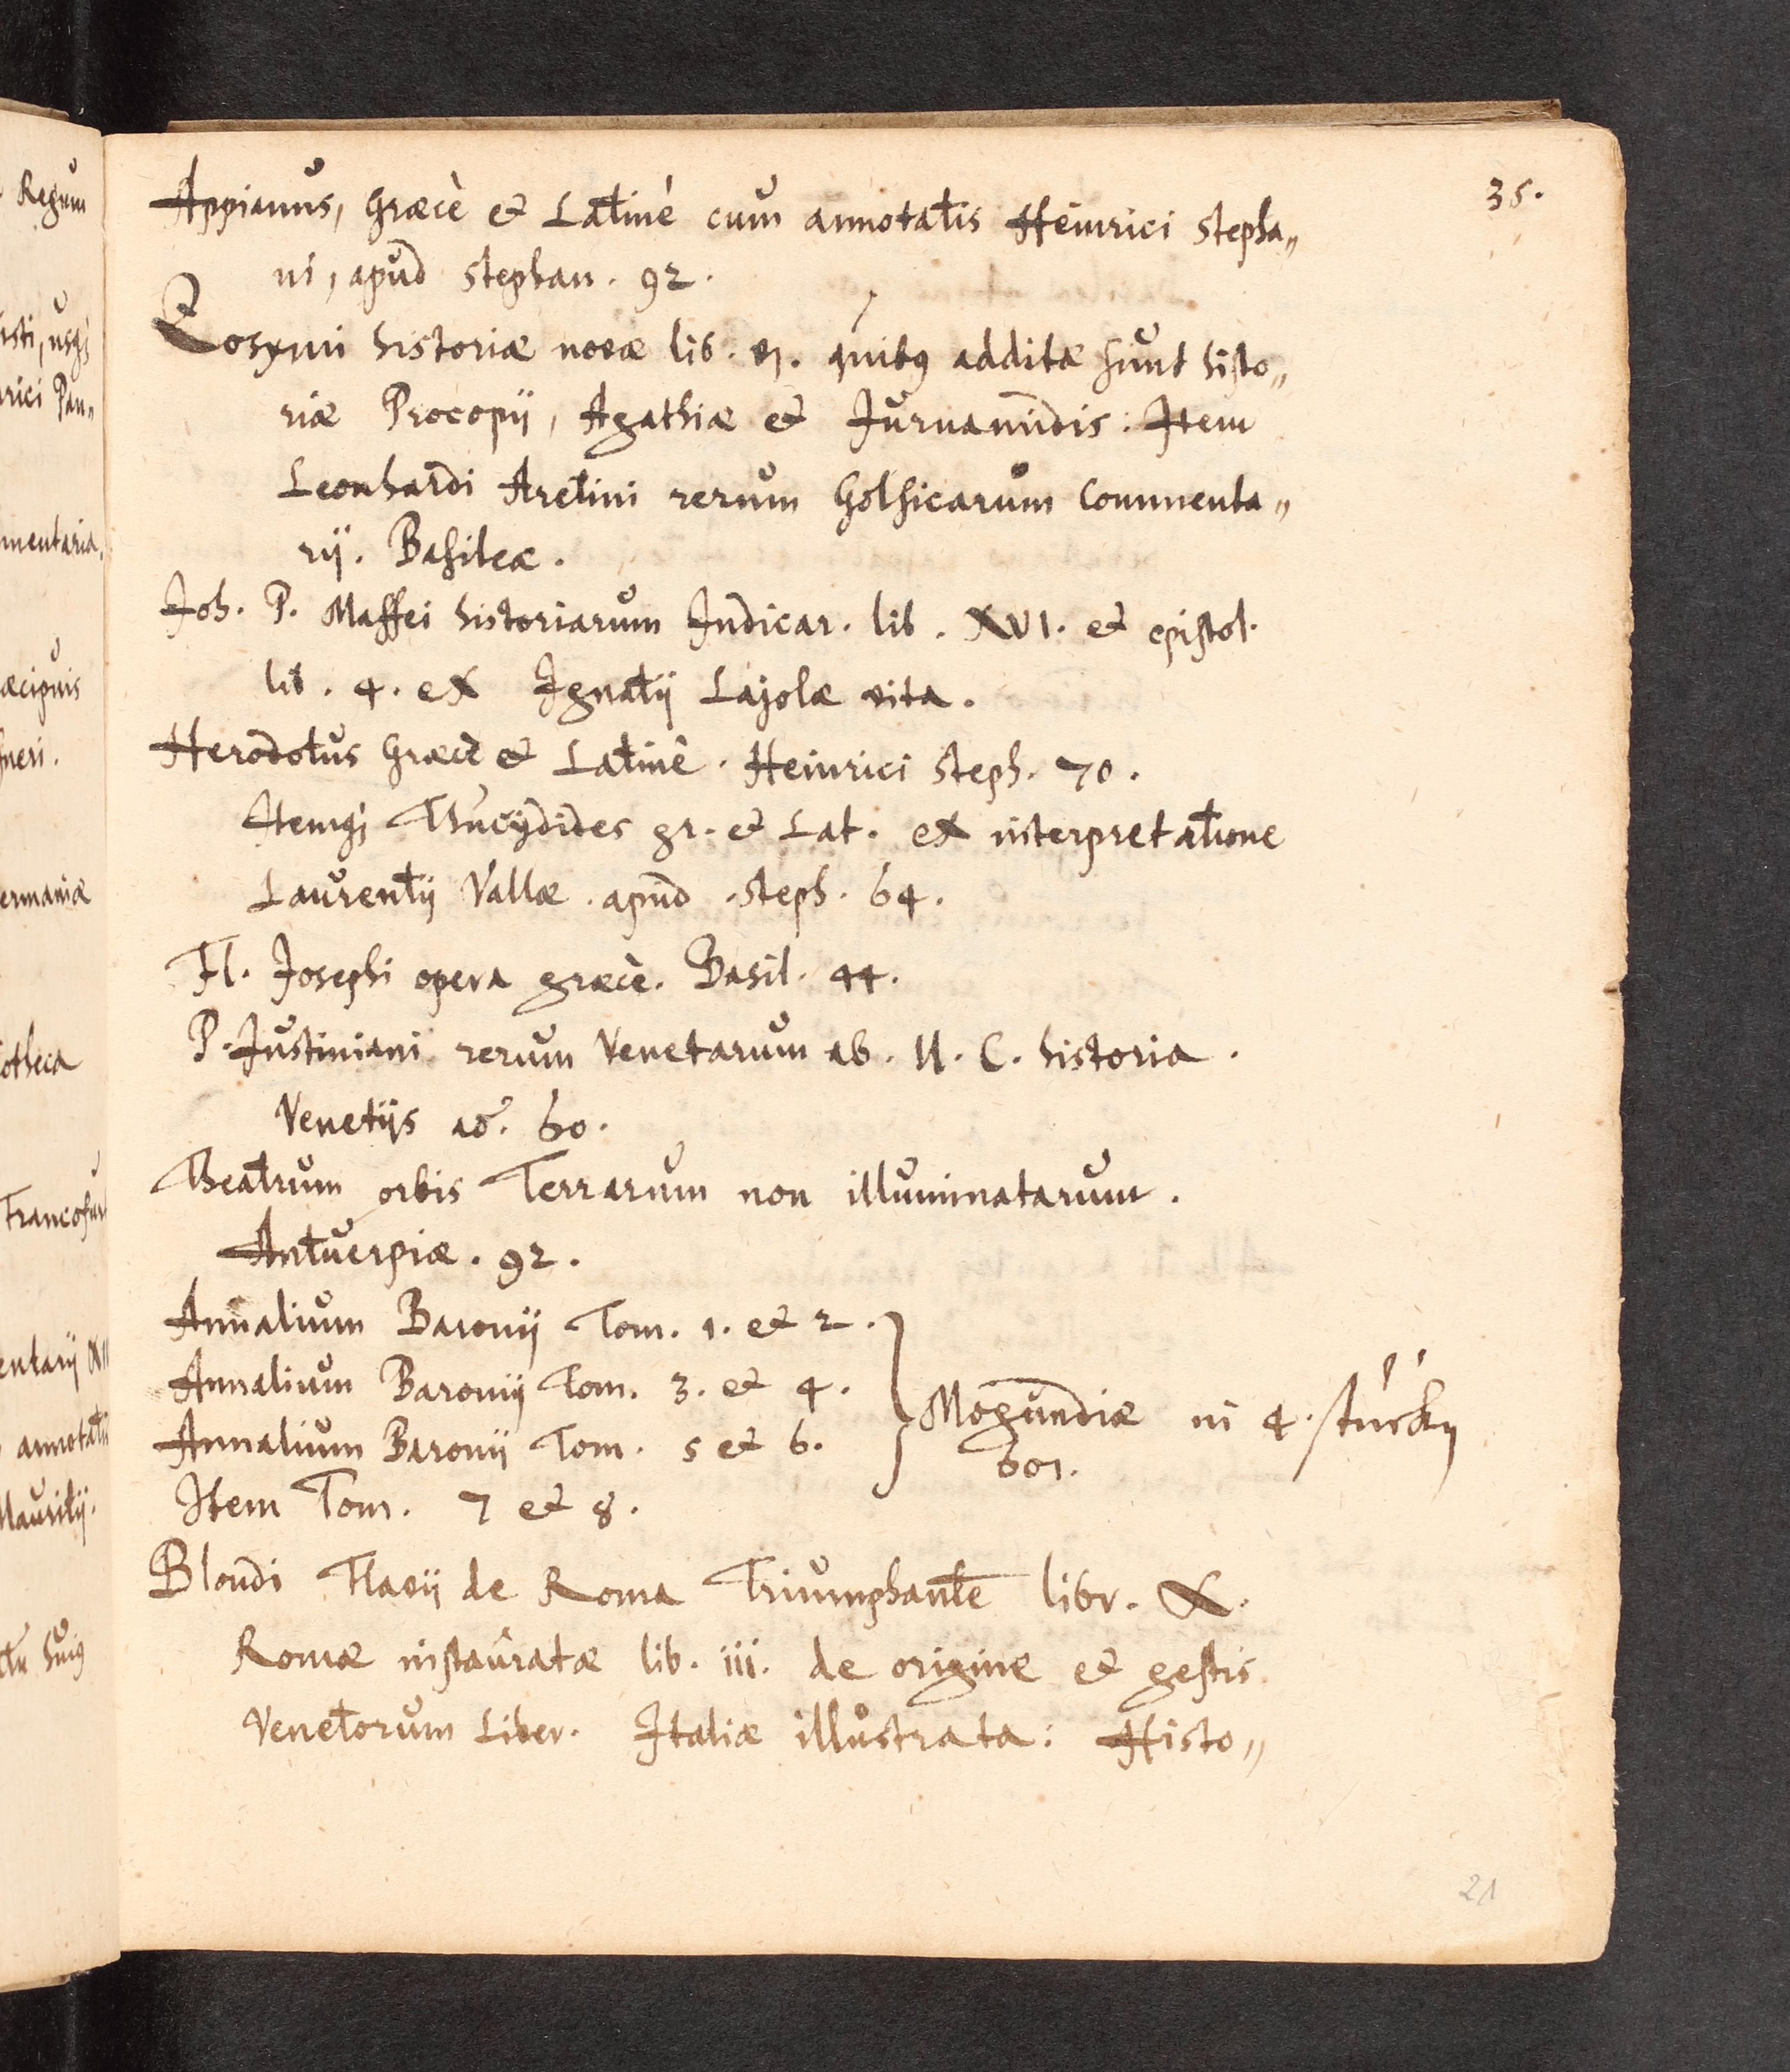 35.
Appianus, Græcè et Latinè cum annotatis Heinrici Stepha„
ni, apud Stephan. 92.
Zosymi historiæ novæ lib. vi. quibꝰ additæ sunt histo„
riæ Procopij, Agathiæ et Jurnanndis: Item
Leonhardi Aretini rerum Gothicarum Commenta„
rij. Basileæ.
Joh. P. Maffei historiarum Indicar. lib. XVI. et epistol.
lib. 4. ex Ignatij Lajolæ vita.
Herodotus Græcè et Latinè. Heinrici Steph. 70.
Itemqꝫ Thucÿdides gr. et Lat. ex interpretatione
Laurentij Vallæ. apud. Steph. 64.
Fl. Josephi opera græcè. Basil. 44.
P. Justiniani rerum Venetarum ab. U. C. historia.
Venetijs aõ. 60.
Theatrum orbis Terrarum non illuminatarum.
Antuerpiæ. 92.
Annalium Baronij Tom. 1. et 2.
Annalium Baronij Tom. 3. et 4.
Annalium Baronij Tom. 5 et 6.
Item Tom. 7 et 8.
Mogundiæ in 4. stuckh
601.
Blondi Flavij de Roma Triumphante libr. X.
Romæ instauratæ lib. iii. de origine et gestis
Venetorum Liber. Italiæ illustrata: Histo„
21
Regum
usqꝫ
Pan„
mentaria.
æcipuis
ermaniæ
otheca
Francofur
entarij
annotatis
huiꝰ